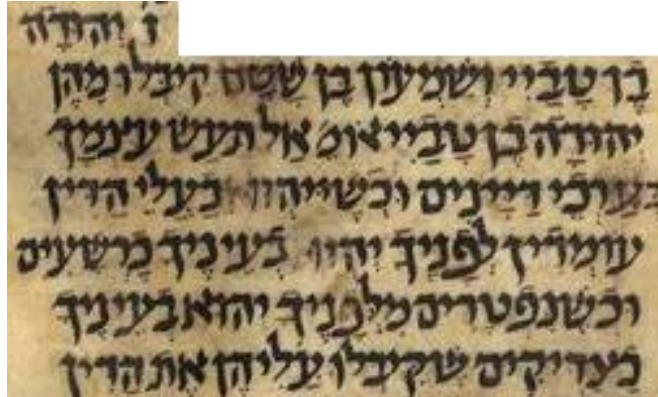 ז יְהוּדָה
בֶּן טָבַיִי וְשִׁמְעוֹן בֶּן שָׁטָח קִיבְּלוּ מֵהֶן
יְהוּדָה בֶן טָבַיי אומ אַל תַּעַשׂ עַצְמָךְ
כְּעוֹרְכֵי דַיָּינִים וּכְשֶׁיִּיהְיוּ בַּעֲלֵי הַדִּין
עוֹמְדִין לְפָנֶיךָ יִהְיוּ בְּעֵינֶיךָ כִּרְשָׁעִים
וּכְשֶׁנִּפְטָרִים מִלְּפָנֶיךָ יְהוּא בְעֵינֶיךָ
כְּצַדִּיקִים שֶׁקִּיבְּלוּ עֲלֵיהֶן אֶת הַדִּין